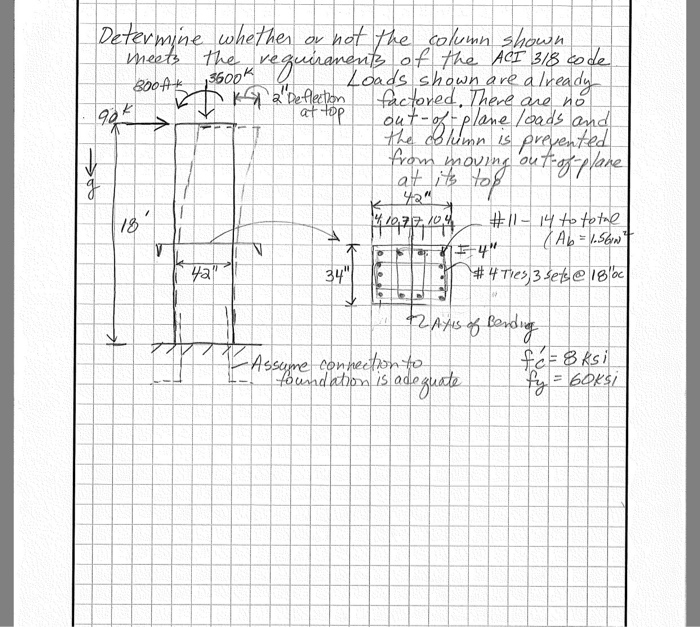 Determine whether or not the column shown
meets the requirements of the ACI 318 code
Loads shown are already
factored. There are no
out-of-plane loads and
the column is prevented
from moving out-of-plane
at its top
800ft-k
3600K
2" Deflection
at top
90K
g
18'
42"
42"
4, 10, 7, 7, 10, 4
#11 - 14 to total
(Ab = 1.56in²
4"
34"
#4 Ties, 3 sets @ 18"oc
Axis of Bending
Assume connection to
foundation is adequate
fc' = 8ksi
fy = 60ksi